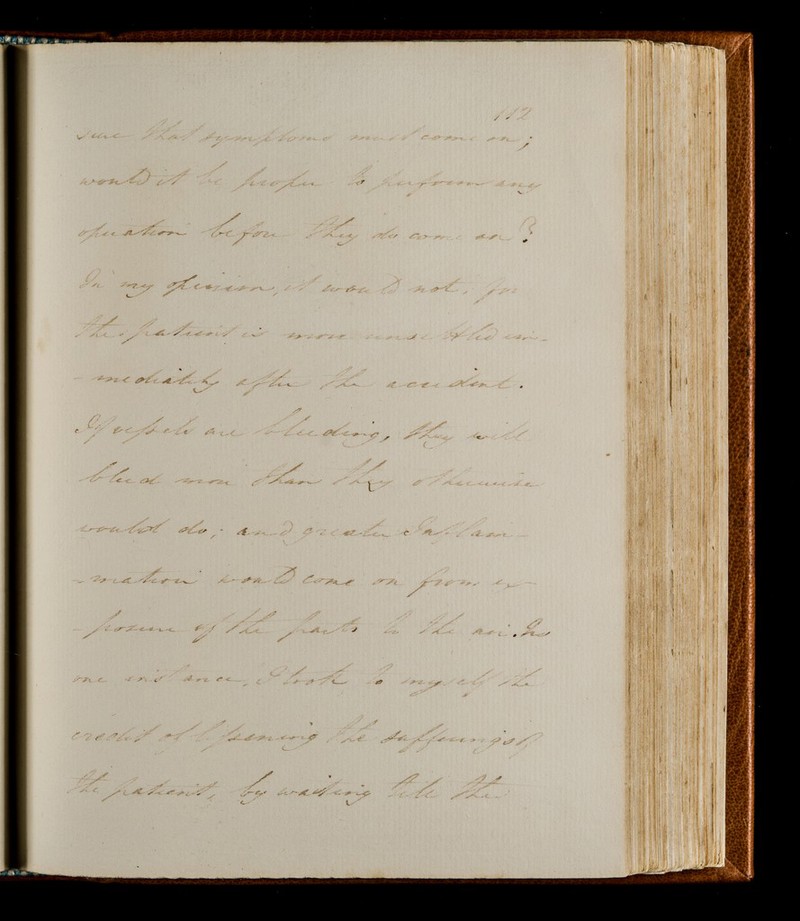 112
sure that symptoms must come on;
would it be proper to perform any
opiration before they do come on?
In my opinion, it would not, for
the patient is more unsettled im-
-mediately after the accident.
If vessels are bleeding, they will
bleed more than they otherwise
would do; and greater Inflam-
-mation would come on from ex-
-posure of the parts to the air. In
one instance, I took to myself the
credit of lessening the sufferings of
the patient, by waiting till the